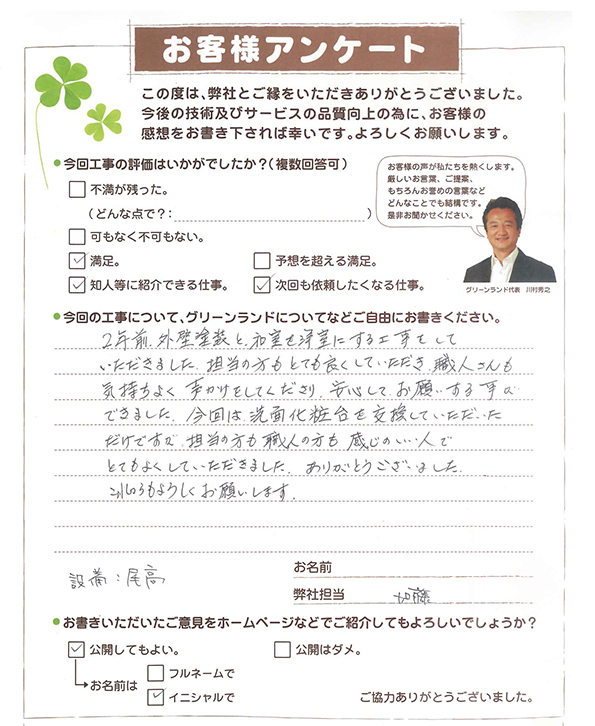 お客様アンケート
この度は、弊社とご縁をいただきありがとうございました。
今後の技術及びサービスの品質向上の為に、お客様の
感想をお書き下されば幸いです。よろしくお願いします。
今回工事の評価はいかがでしたか?(複数回答可)
不満が残った。
(どんな点で?: )
可もなく不可もない。
満足。
予想を超える満足。
知人等に紹介できる仕事。
次回も依頼したくなる仕事。
お客様の声が私たちを熱くします。
厳しいお言葉、ご提案、
もちろんお誉めの言葉など
どんなことでも結構です。
是非お聞かせください。
グリーンランド代表 川村秀之
今回の工事について、グリーンランドについてなどご自由にお書きください。
2年前、外壁塗装と、和室を洋室にする工事をして
いただきました。担当の方もとても良くしていただき、職人さんも
気持ちよく声かけをしてくださり、安心してお願いする事が
できました。今回は洗面化粧台を交換していただいた
だけですが、担当の方も職人の方も感じのいい人で
とてもよくしていただきました。ありがとうございました。
これからもよろしくお願いします。
設備:尾高
お名前
弊社担当 加藤
お書きいただいたご意見をホームページなどでご紹介してもよろしいでしょうか?
公開してもよい。
公開はダメ。
お名前は
フルネームで
イニシャルで
ご協力ありがとうございました。